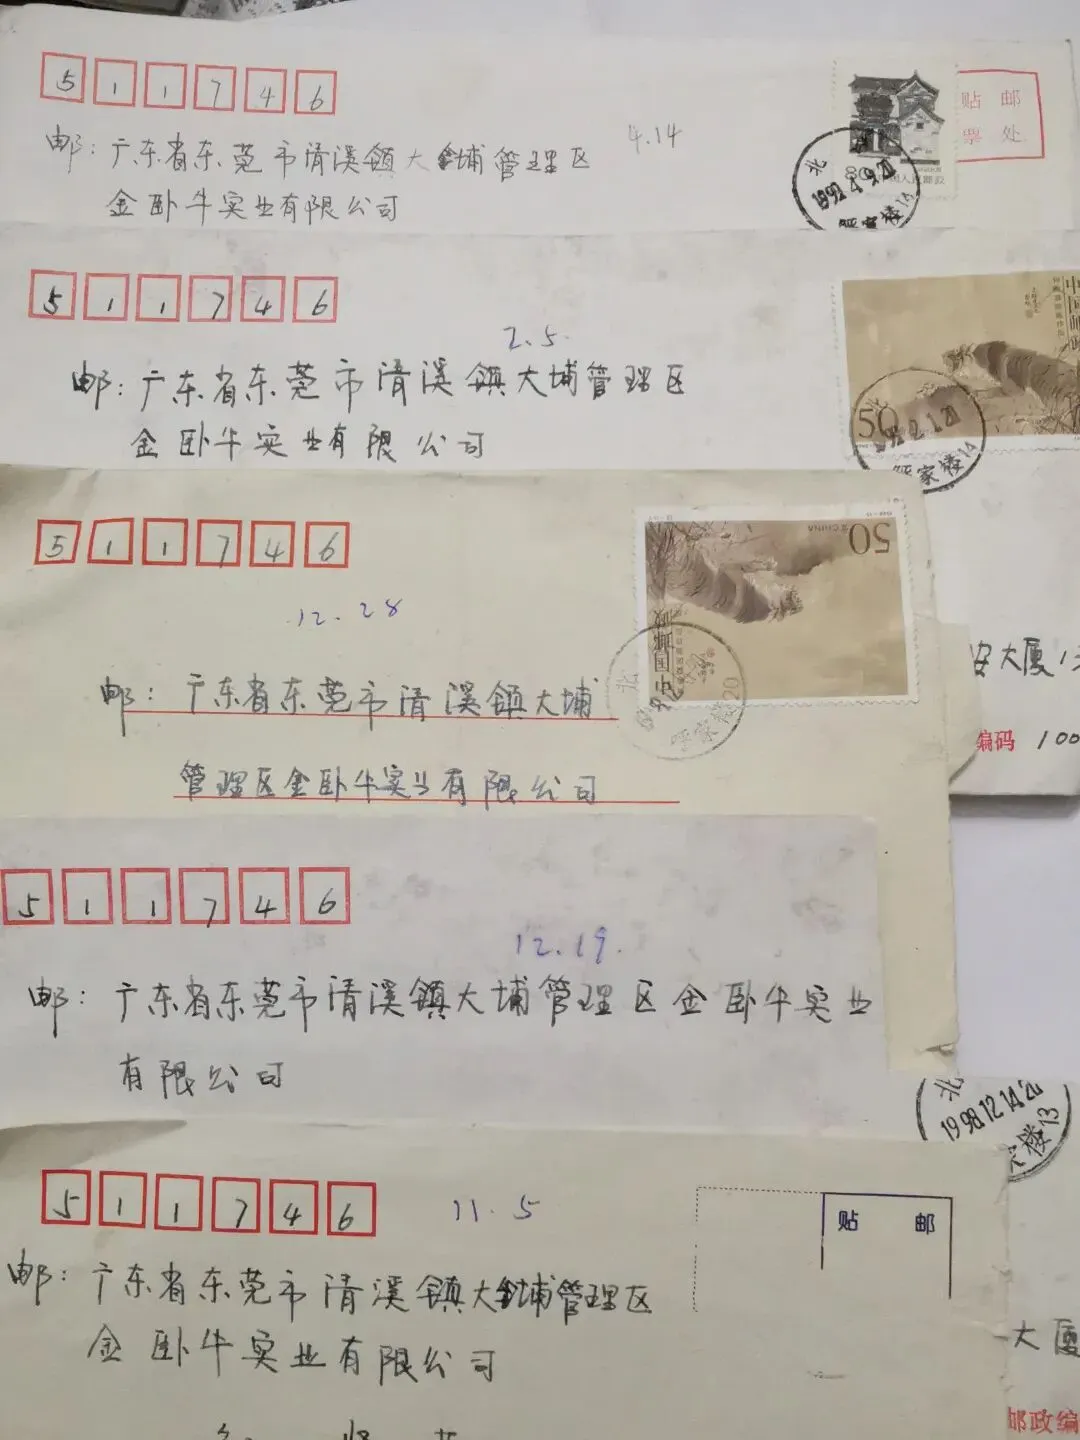 511746
贴 邮
票 处
4.14
邮：广东省东莞市清溪镇大埔管理区
金卧牛实业有限公司
80
中国人民邮政
北
1992.4.9.20
呼家楼14
511746
2.5.
邮：广东省东莞市清溪镇大埔管理区
金卧牛实业有限公司
中国邮政
50
北
2.1.20
呼家楼14
511746
12.28
50
CHINA
中国邮政
北
呼家楼20
邮：广东省东莞市清溪镇大埔
管理区金卧牛实业有限公司
安大厦1
编码 100
511746
12.19.
邮：广东省东莞市清溪镇大埔管理区金卧牛实业
有限公司
北
1998.12.14.20
楼13
511746
11.5
贴 邮
邮：广东省东莞市清溪镇大埔管理区
金卧牛实业有限公司
大厦
邮政编